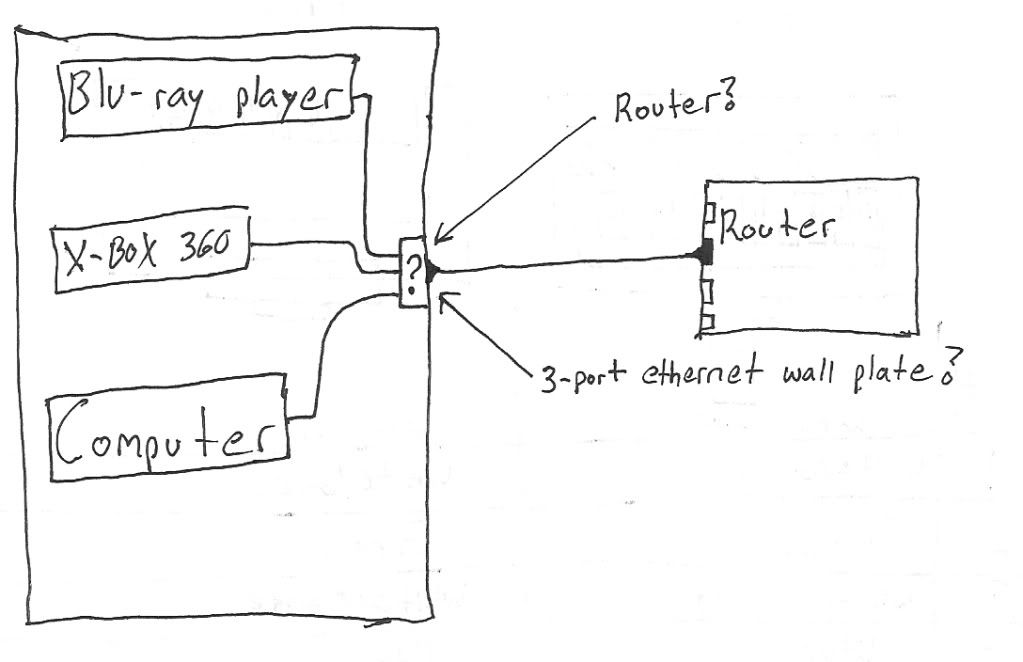 Blu-ray player
Router?
X-BOX 360
?
Router
3-port ethernet wall plate?
Computer